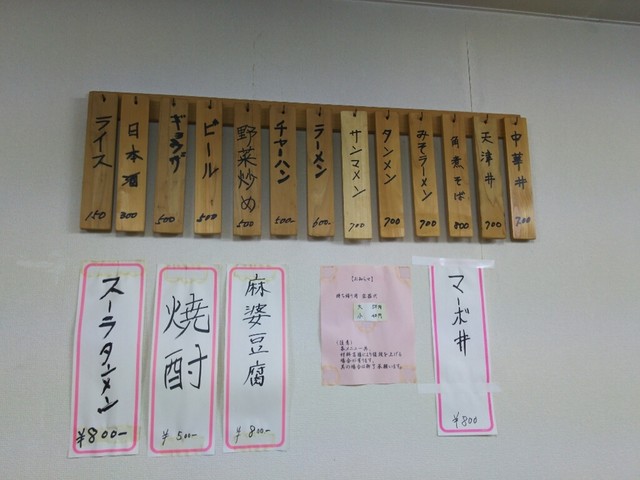 中華丼 700
天津丼 700
角煮そば 800
みそラーメン 700
タンメン 700
サンマメン 700
ラーメン 600
チャーハン 500
野菜炒め 500
ビール 500
ギョウザ 500
日本酒 300
ライス 150
マーボ丼
¥800
【お知らせ】
持ち帰り用 容器代
(注意)
麻婆豆腐
¥800-
焼酎
¥500-
スーラタンメン
¥800-